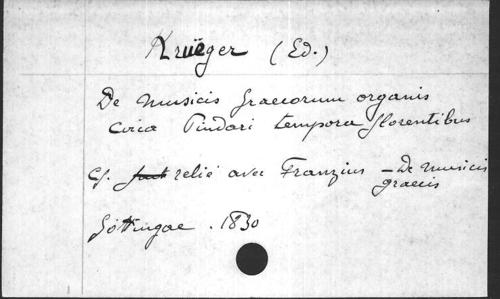 Krüeger (Ed.)
De musicis Graecorum organis
circa Pindari tempora florentibus
cf. relié avec Franzius - De musicis
graecis
Göttingae. 1830